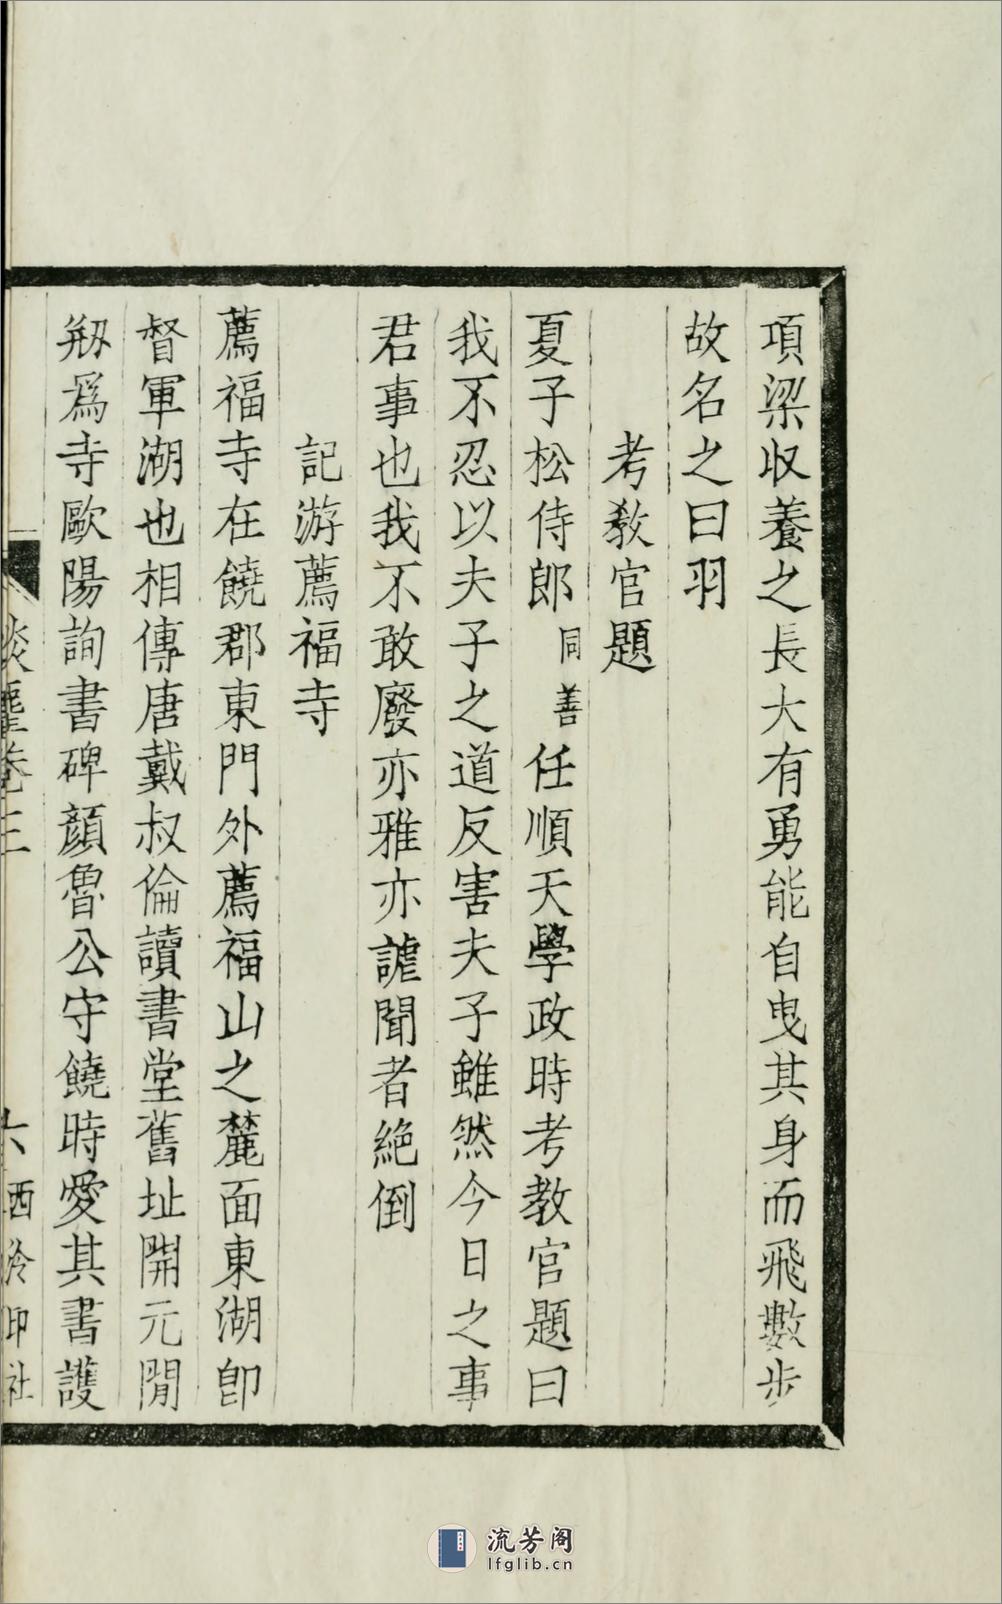 項梁收養之長大有勇能自曳其身而飛數步
故名之曰羽
考教官題
夏子松侍郎同善任順天學政時考教官題曰
我不忍以夫子之道反害夫子雖然今日之事
君事也我不敢廢亦雅亦謔聞者絕倒
記游薦福寺
薦福寺在饒郡東門外薦福山之麓面東湖卽
督軍湖也相傳唐戴叔倫讀書堂舊址開元閒
剏爲寺歐陽詢書碑顏魯公守饒時愛其書護
談麈卷三 六 西泠印社
流芳阁
lfglib.cn